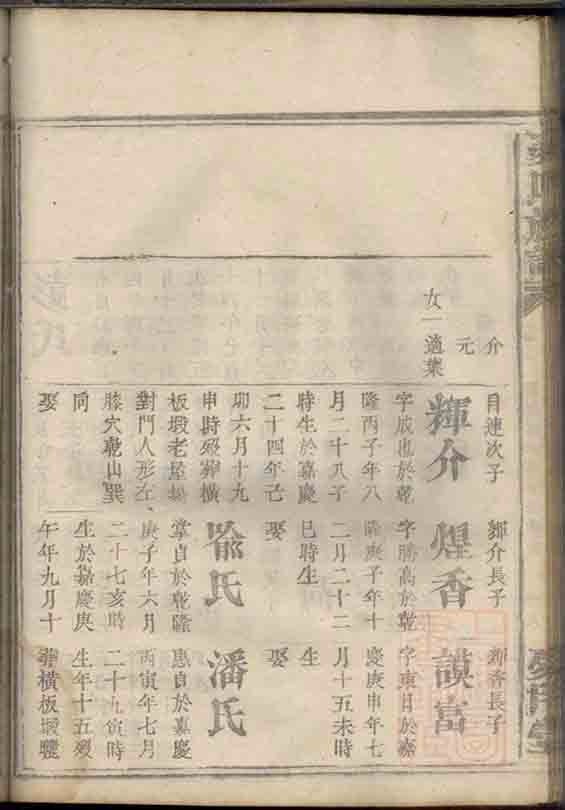 介
元
女一適葉
目連次子
輝介
字成也於乾
隆丙子年八
月二十八子
時生於嘉慶
二十四年己
卯六月十九
申時歿葬橫
板塅老屋場
對門人形左
膝穴乾山巽
同
娶
輝介長子
煋香
字勝萬於乾
隆庚子年十
二月二十二
巳時生
娶
喻氏
掌貞於乾隆
庚子年六月
二十七亥時
生於嘉慶庚
午年九月十
長子
謨富
字東日於嘉
慶庚申年七
月十五未時
生
娶
潘氏
惠貞於嘉慶
丙寅年七月
二十九寅時
生年十五歿
葬橫板塅